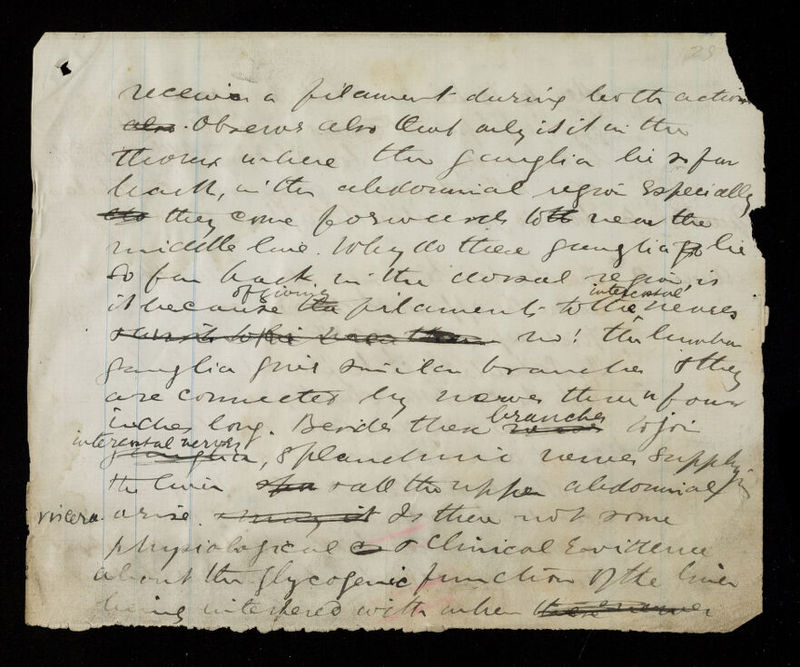 28
receive a filament during both action
also. Observe also that only is it in the
thorax where the ganglia lie so far
back, in the abdominal region Especially
they come forwards to near the
middle line. Why do these ganglia lie
so far back in the dorsal region, is
it because of giving filament to the intercostal nerves
no! the lumbar
ganglia give similar branches & they
are connected by nerves three or four
inches long. Besides these branches to join
intercostal nerves, Splanchnic nerves supplying
the liver & all the upper abdominal
viscera arise. Is there not some
physiological & Clinical Evidence
about the glycogenic function of the liver
being interfered with when